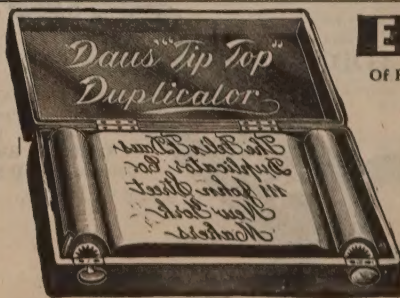 Daus' "Tip Top"
Duplicator
The Felix F. Daus
Duplicator Co.
111 John Street
New York
Makers
E
Of